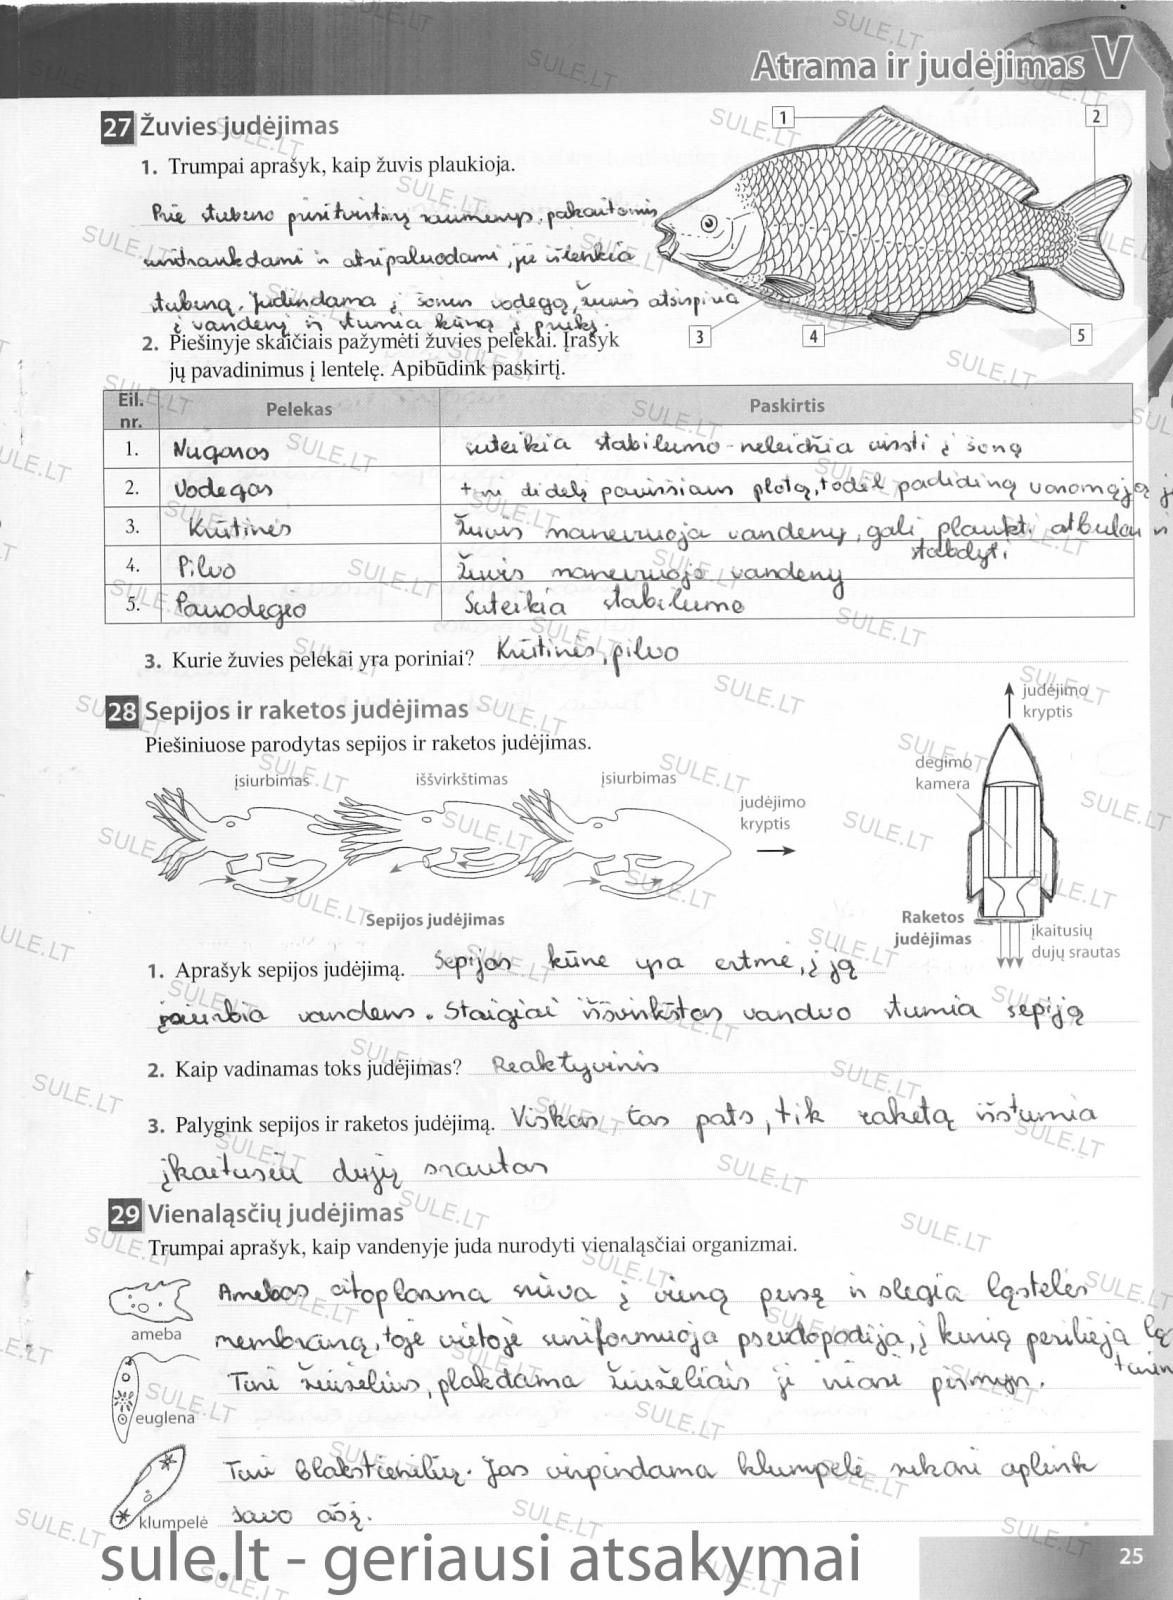 Atrama ir judėjimas V
27 Žuvies judėjimas
1. Trumpai aprašyk, kaip žuvis plaukioja.
Prie stuburo pritvirtintų raumenys, pakaitomis
susitraukdami ir atsipalaiduodami, jie išlenkia
stuburą. Judindama į šonus uodegą, žuvis atsispiria
į vandenį ir stumia kūną į priekį.
1
2
3
4
5
2. Piešinyje skaičiais pažymėti žuvies pelekai. Įrašyk
jų pavadinimus į lentelę. Apibūdink paskirtį.
Eil. nr. Pelekas Paskirtis
1. Nugaros suteikia stabilumo - neleidžia virsti į šoną
2. Uodegos turi didelį paviršiaus plotą, todėl padidina varomąją
3. Krūtinės Žuvis manevruoja vandeny, gali plaukti atbulai ir
stabdyti
4. Pilvo Žuvis manevruoja vandeny
5. Pauodegio Suteikia stabilumo
3. Kurie žuvies pelekai yra poriniai? Krūtinės, pilvo
28 Sepijos ir raketos judėjimas
Piešiniuose parodytas sepijos ir raketos judėjimas.
įsiurbimas iššvirkštimas įsiurbimas
judėjimo
kryptis
Sepijos judėjimas
judėjimo
kryptis
degimo
kamera
Raketos
judėjimas
įkaitusių
dujų srautas
1. Aprašyk sepijos judėjimą. Sepijos kūne yra ertmė, į ją
įsiurbia vandens. Staigiai iššvirkštas vanduo stumia sepiją
2. Kaip vadinamas toks judėjimas? Reaktyvinis
3. Palygink sepijos ir raketos judėjimą. Viskas tas pats, tik raketą išstumia
įkaitusių dujų srautas
29 Vienaląsčių judėjimas
Trumpai aprašyk, kaip vandenyje juda nurodyti vienaląsčiai organizmai.
ameba
Amebos citoplazma srūva į vieną pusę ir slegia ląstelės
membraną, toje vietoje susiformuoja pseudopodija, į kurią perilieja
euglena
Turi žiuželius, plakdama žiuželiais ji iriasi pirmyn.
klumpelė
Turi blakstienėlių. Jas virpindama klumpelė sukasi aplink
savo ašį.
sule.lt - geriausi atsakymai
25